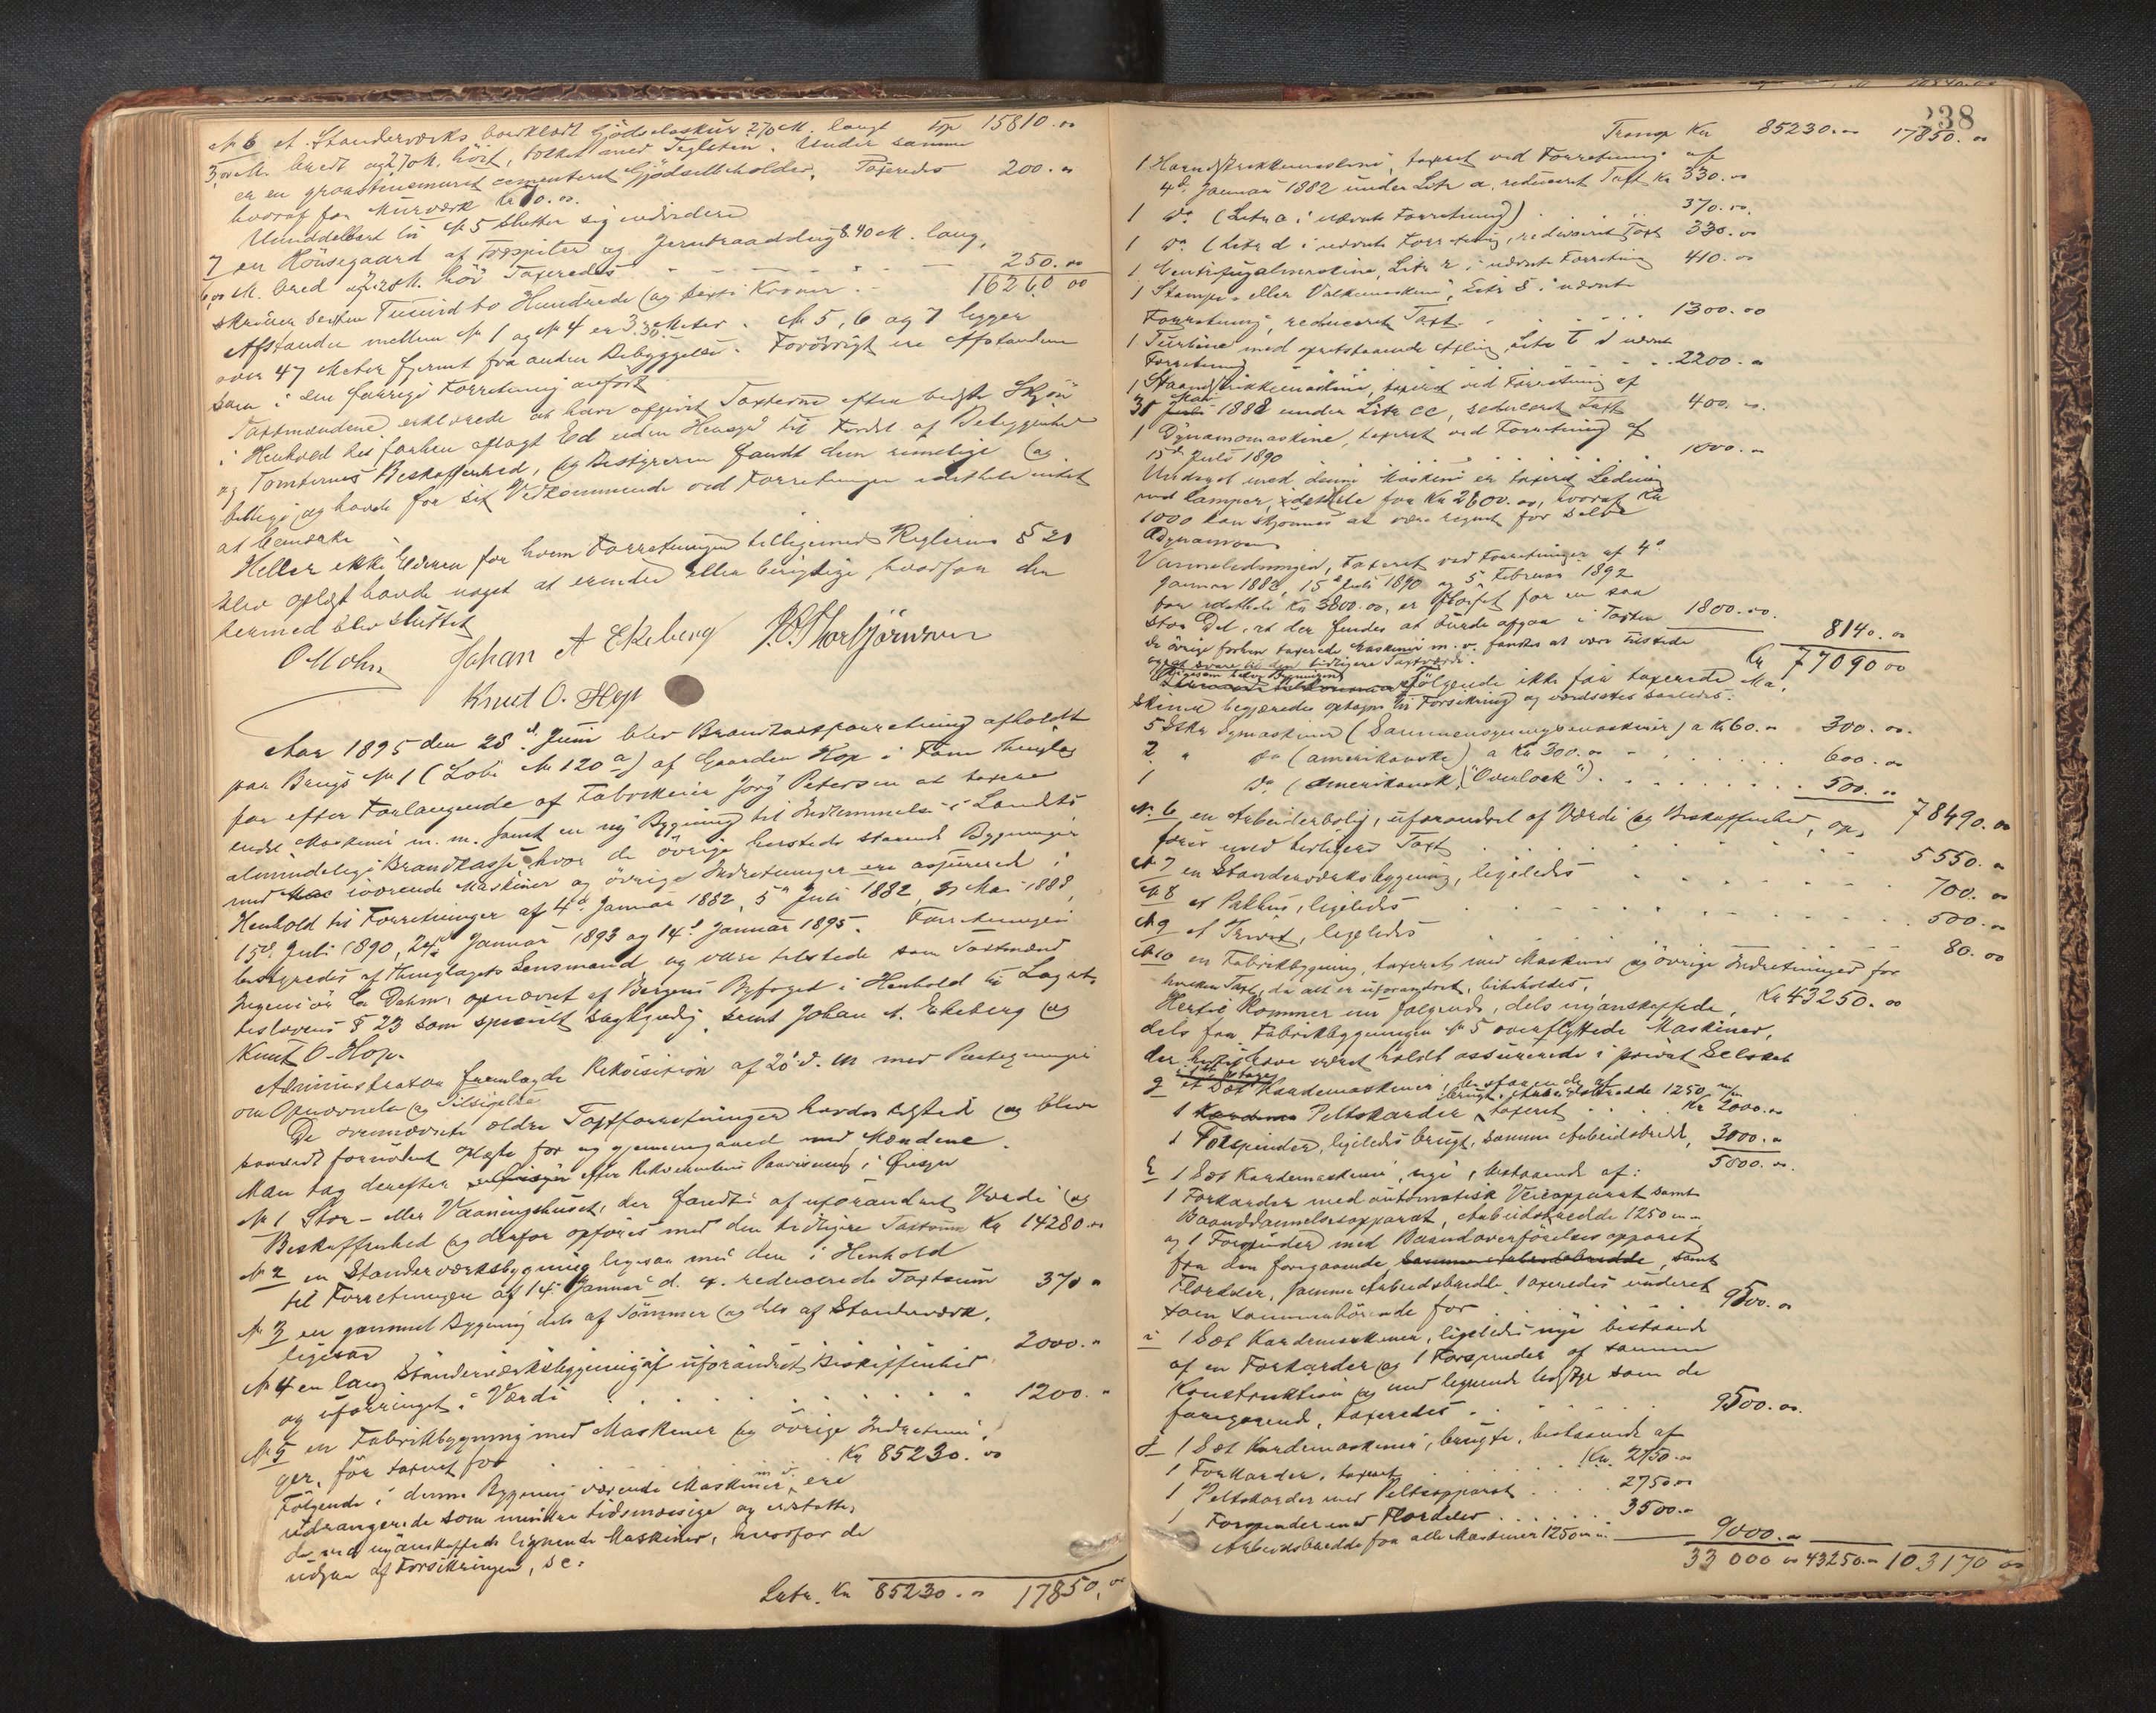 № 6 et Standerværks bordklædt Gjödselsskur 2,70 M. langt Trp 15810.00
3,00 M. bredt og 2,70 M. höit, tækket med Taglsten. Under samme
er en graastensmuret cementeret Gjödselbeholder. Taxeredes 200.00
hvoraf for Murværk Kr 70.00.
Umiddelbart til № 5 slutter sig endvidere
7 en Hönsegaard af Træspiler og Jerntraaddug 8.40 M. lang,
6,00 M. bred og 2.20 M. höi Taxeredes 250.00
16260 00
skriver sexten Tusind to Hundrede og sexti Kroner.
Afstanden mellem № 1 og № 4 er 3.30 Meter. № 5, 6 og 7 ligger
over 47 Meter fjernt fra anden Bebyggelse. Forövrigt ere Afstandene
som i den forrige Forretning anfört.
Taxtmændene erklærede at have afgivet Taxterne efter bedste Skjön
i Henhold til forhen aflagt Ed uden Hensyn til Fordel af Beliggenhed
og Tomternes Beskaffenhed, og Bestyreren fandt dem rimelige og
billige, og havde for sit Vedkommende ved Forretningen idethele intet
at bemærke
Heller ikke Eieren for hvem Forretningen tilligemed Reglerne § 21
blev oplæst havde noget at erindre eller berigtige, hvorfor den
hermed blev sluttet
O Mohn Johan A Ekeberg P. Thorbjörnsen
Knut O. Hop
Aar 1895 den 28d Juni blev Brandtaxtforretning afholdt
paa Brugs № 1 (Löbe № 120a) af Gaarden Hop i Fane Thinglag
for efter Forlangende af Fabrikeier Jörg Petersen at taxere
endel Maskiner m. m. samt en ny Bygning til Indlemmelse i Landets
almindelige Brandkasse, hvor de övrige hersteds staaende Bygninger
med iværende Maskiner og övrige Indretninger ere assurerede i
Henhold til Forretninger af 4d Januar 1882, 5d Juli 1882, 31 Mai 1888,
15d Juli 1890, 24d Januar 1893 og 14d Januar 1895. Forretningen
bestyredes af Thinglagets Lensmand og vare tilstede som Taxtmænd
Ingeniör C. Dahm, opnævnt af Bergens Byfoged i Henhold til Lagrets-
teslovens § 23 som specielt sagkyndig, samt Johan A. Ekeberg og
Knut O. Hop.
Administrator fremlagde Rekvisition af 20d d. M med Paategninger
om Opnævnelse og Tilsigelse
De ovennævnte ældre Taxtforretninger havdes tilstede og blev
saavidt fornödent oplæste for og gjennemgaaet med Mændene.
Man tog derefter efter Rekvirentens Paavisning i Öiesyn
№ 1 Stor- eller Vaaningshuset, der fandtes af uforandret Værdi og
Beskaffenhed og derfor opföres med den tidligere Taxtsum Kr 14280.00
№ 2 en Standerværksbygning ligesaa med den i Henhold
til Forretningen af 14 Januar d. A. reducerede Taxtsum 370 "
№ 3 en gammel Bygning dels af Tömmer og dels af Standerværk,
ligesaa 2000. "
№ 4 en lang Standerværksbygning af uforandret Beskaffenhed
og uforringet i Værdi 1200. "
№ 5 en Fabrikbygning med Maskiner og övrige Indretnin-
ger, för taxeret for Kr 85230.00
Fölgende i denne Bygning værende Maskiner m. v. ere
udrangerede som mindre tidsmæssige og erstatte-
de ved nyanskaffede lignende Maskiner, hvorfor de
udgaa af Forsikringen, sc:
Latr. Kr 85230.00 17850.00
238
Transp Kr 85230.00 17850.00
1 Haandstrikkemaskine, taxeret ved Forretning af
4d Januar 1882 under Litr a, reduceret Taxt Kr 330.00
1 do (Litr a i nævnte Forretning) 370.00.
1 do (Litr d i nævnte Forretning, reduceret Taxt 330.00
1 Centrifugalmaskine, Litr r i nævnte Forretning 410.00
1 Stampe- eller Valkemaskine, Litr S i nævnte
Forretning, reduceret Taxt 1300.00
1 Turbine med opretstaaende Axling, Litr t i nævnte
Forretning 2200.00
1 Haandstrikkemaskine, taxeret ved Forretning af
31 Mai 1888 under Litr cc, reduceret Taxt 400.00.
1 Dynamomaskine, taxeret ved Forretning af
15d Juli 1890 1000.00
Underet med denne Maskine er taxeret Ledning
med Lamper, idethele for Kr 2600.00, hvoraf Kr
1000 kan skjönnes at være regnet for selve
Dynamoen
Varmeledningen, taxeret ved Forretninger af 4d
Januar 1882, 15d Juli 1890 og 5 Februar 1892
for idethele Kr 3800.00, er slöifet for en saa
stor Del, at der fandtes at burde afgaa i Taxten 1800.00. 8140.00
De övrige forhen taxerede Maskiner m. v. fandtes at være tilstede
og at svare til den tidligere Taxtværdi. Kr 77090 00
ligesom selve Bygningen
Fölgende ikke för taxerede Ma-
skiner begjæredes optagne til Forsikring og værdsattes saaledes:
5 Stkr Symaskiner (Sammensyningsmaskiner) a Kr 60. " 300.00.
2 " do (amerikanske) a Kr 300.00 600.00
1 do (Amerikansk, "Overlock") 500.00 78490.00
№ 6 en Arbeiderbolig, uforandret af Værdi og Beskaffenhed, op-
föres med tidligere Taxt 5550. "
№ 7 en Standerværksbygning, ligeledes 700.00
№ 8 et Pakhus, ligeledes 500.00
№ 9 et Privet, ligeledes 80.00
№ 10 en Fabrikbygning, taxeret med Maskiner og övrige Indretninger for
hvilken Taxt, da alt er uforandret, bibeholdes, Kr 43250.00
Hertil kommer nu fölgende, dels nyanskaffede,
dels fra Fabrikbygningen № 5 overflyttede Maskiner,
der hidtil have været holdt assurerede i privat Selskab
i 1ste Etage
g et Sæt Kardemaskiner, bestaaende af
brugt, Arbeidsbredde 1250 m/m
1 Peltskarder taxeret Kr 2000.00
1 Forspinder, ligeledes brugt, samme Arbeidsbredde, 3000. " 5000.00.
h 1 Sæt Kardemaskiner, nye, bestaaende af:
1 Forkarder med automatisk Veieapparat samt
Baanddannelsesapparat, Arbeidsbredde 1250 m m
og 1 Forspinder med Baandoverförelsesapparat
fra den foregaaende, samme Arbeidsbredde, samt
Flordeler, samme Arbeidsbredde. Taxeredes underet
som sammenhörende for 9500.00
i 1 Sæt Kardemaskiner, ligeledes nye bestaaende
af en Forkarder og 1 Forspinder af samme
Konstruktion og med lignende Udstyr som de
foregaaende, taxeredes 9500.00.
j 1 Sæt Kardemaskiner, brugte, bestaaende af
1 Forkarder, taxeret Kr. 2750.00
1 Peltskarder med Peltsapparat 2750 00
1 Forspinder med Flordeler 3500.00
Arbeidsbredde for alle Maskiner 1250 m m 9000.00
33 000 00 43250.00 103170 00